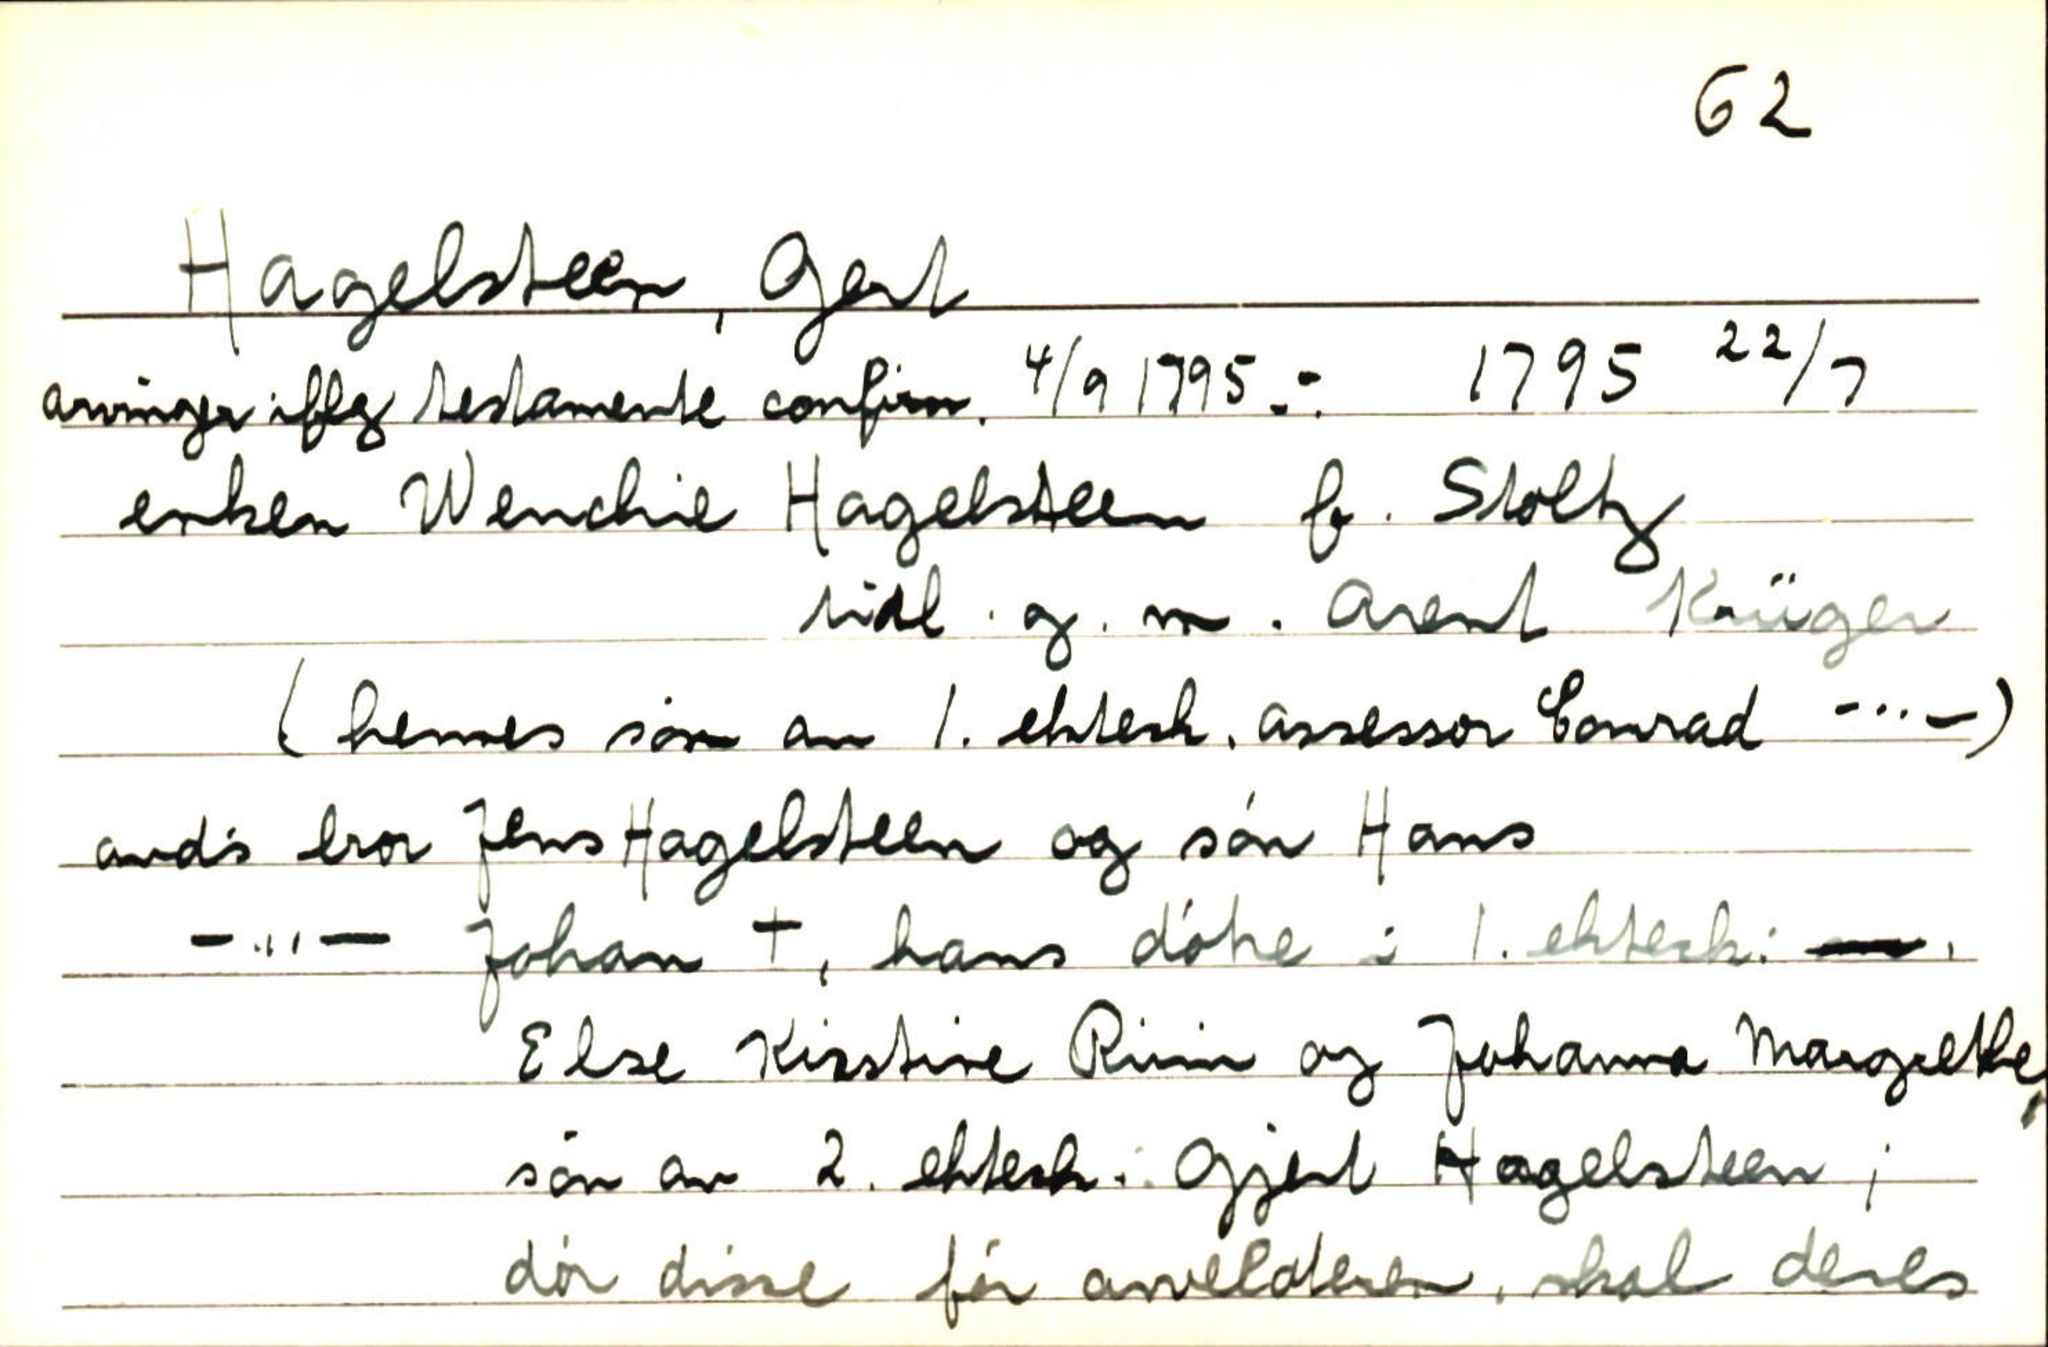 62
Hagelsteen, Gert
arvinger iflg testamente confirm. 4/9 1795 -:- 1795 22/7
enken Wenchie Hagelsteen f. Stoltz
tidl. g. m. Arent Krüger
(hennes søn av 1. ektesk. assessor Conrad -"-)
avd's bror Jens Hagelsteen og søn Hans
-"- Johan +, hans døtre i 1. ektesk:
Else Kirstine Riim og Johanna Margrethe,
søn av 2. ektesk: Gjert Hagelsteen;
dør disse før arveladeren, skal deres